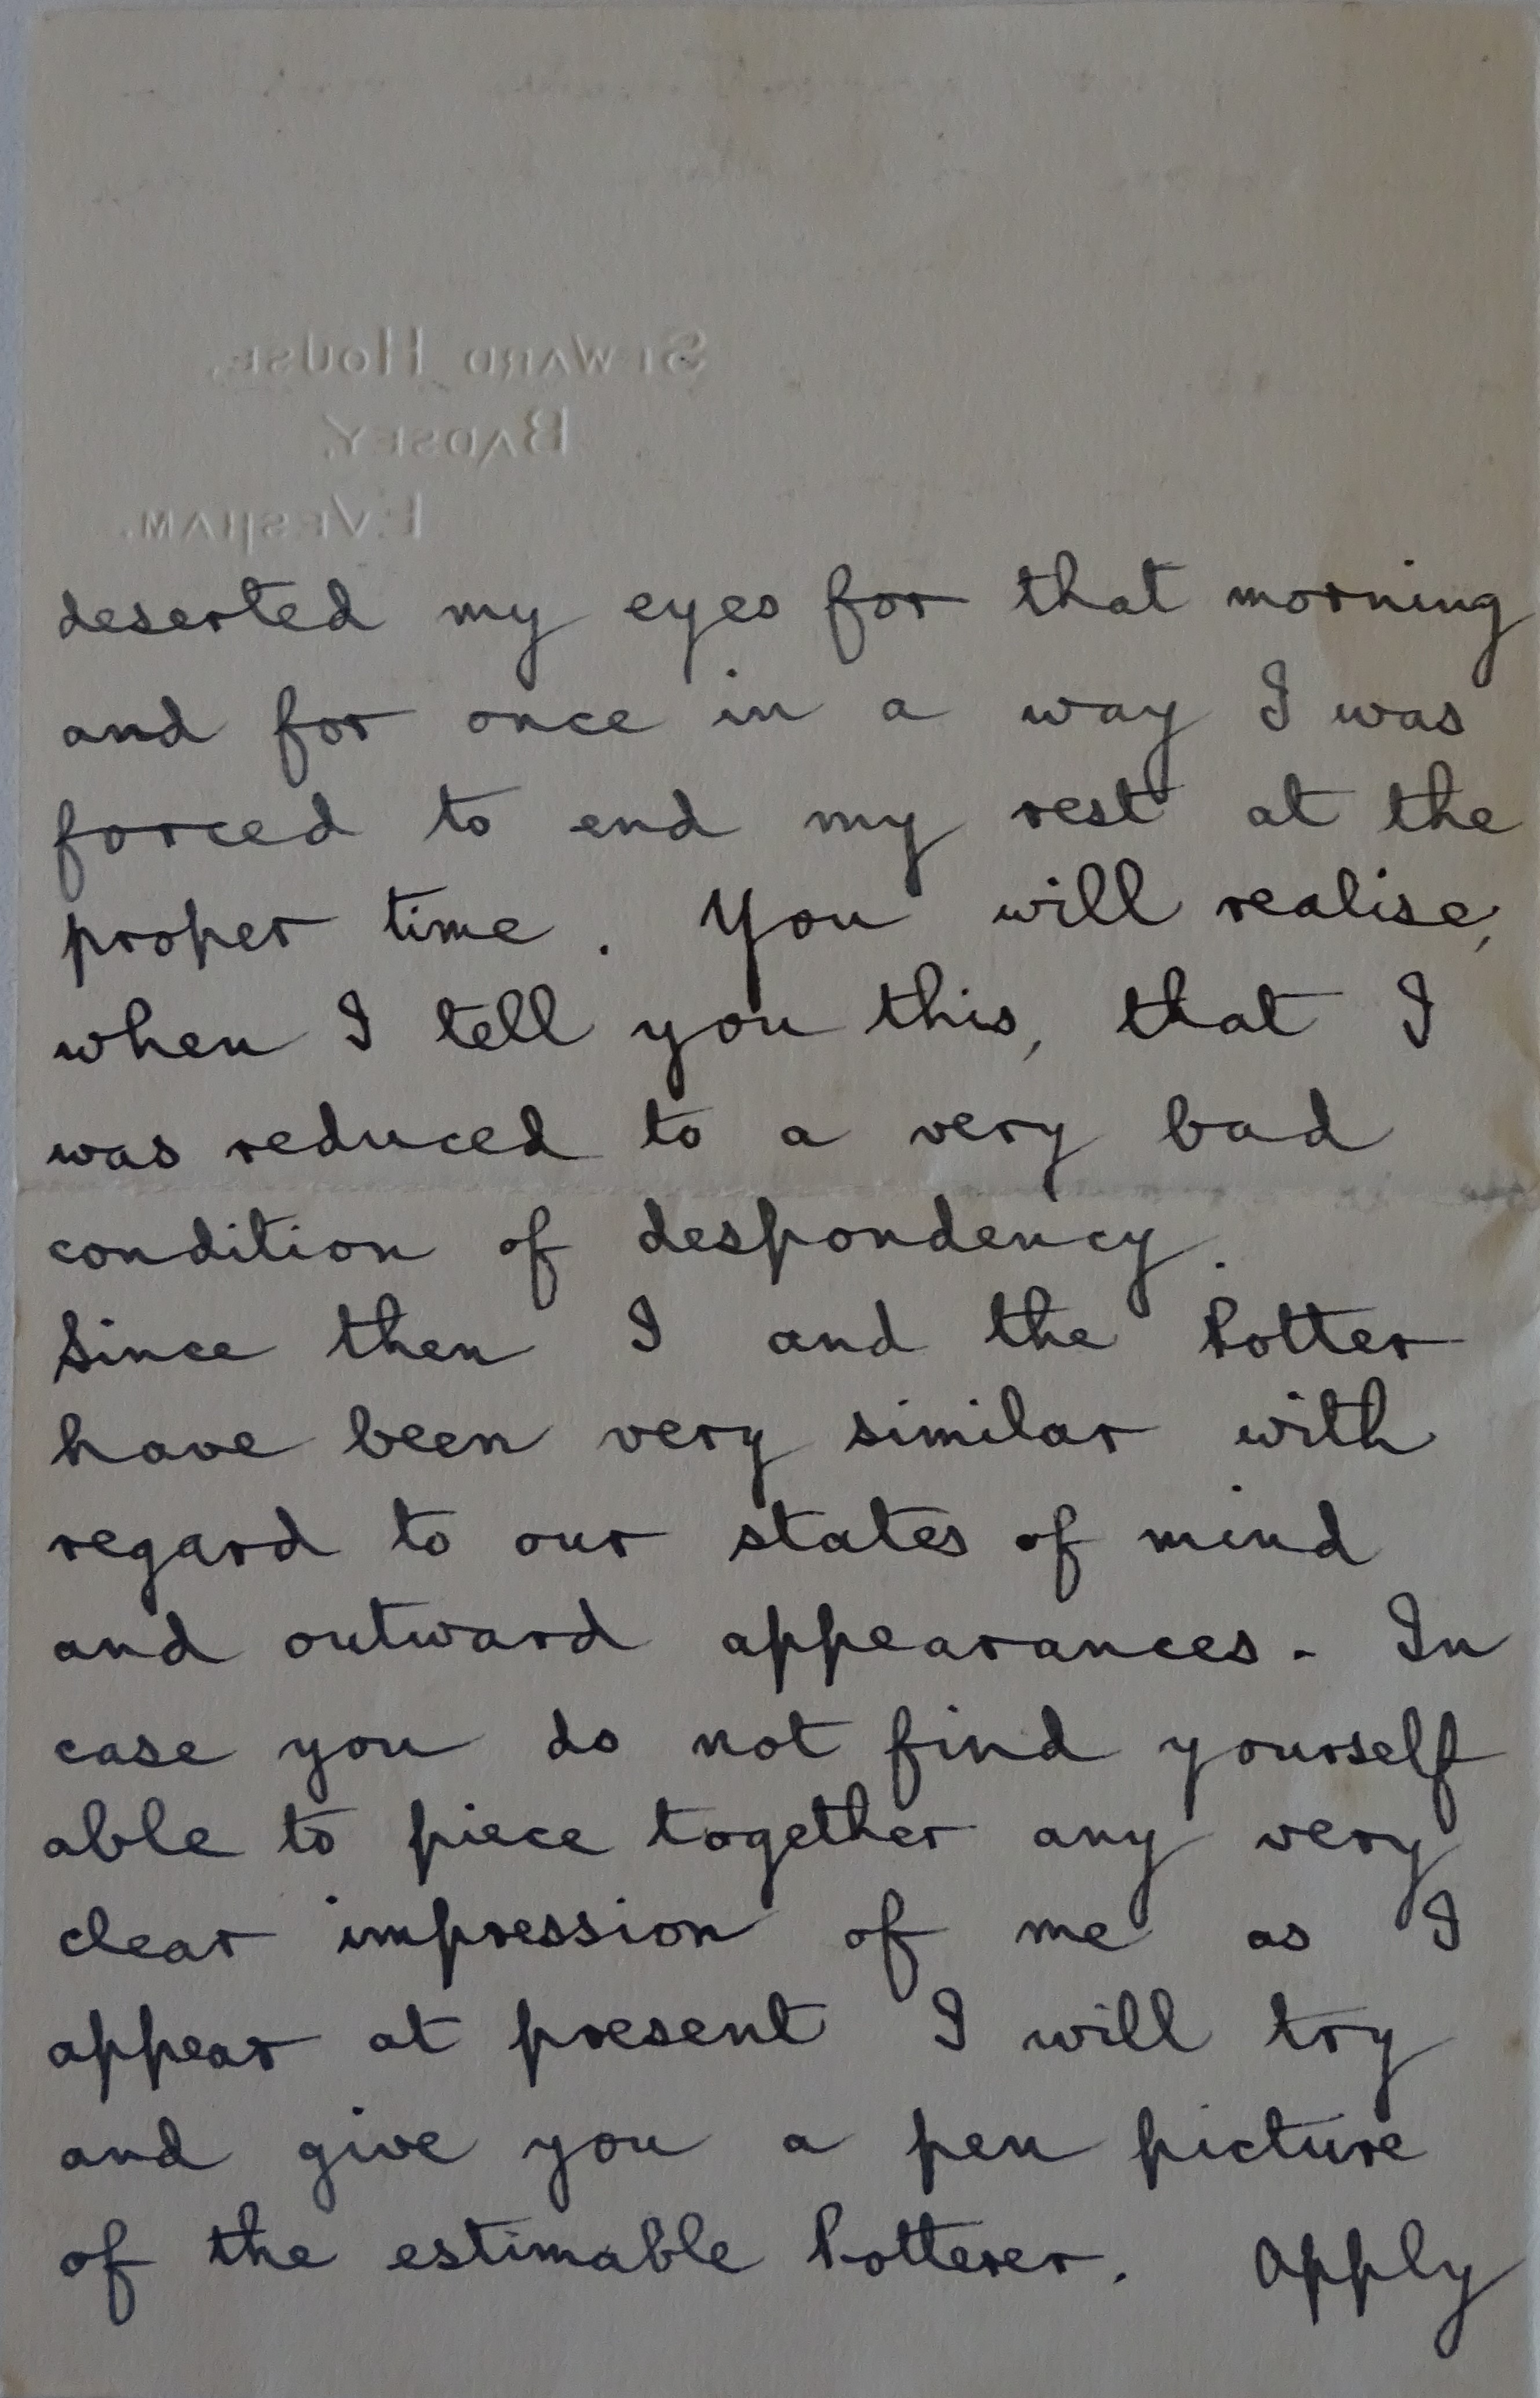 SEWARD HOUSE,
BADSEY,
EVESHAM.
deserted my eyes for that morning
and for once in a way I was
forced to end my rest at the
proper time. You will realise,
when I tell you this, that I
was reduced to a very bad
condition of despondency.
Since then I and the Potter
have been very similar with
regard to our states of mind
and outward appearances. In
case you do not find yourself
able to piece together any very
clear impression of me as I
appear at present I will try
and give you a pen picture
of the estimable Potterer. Apply